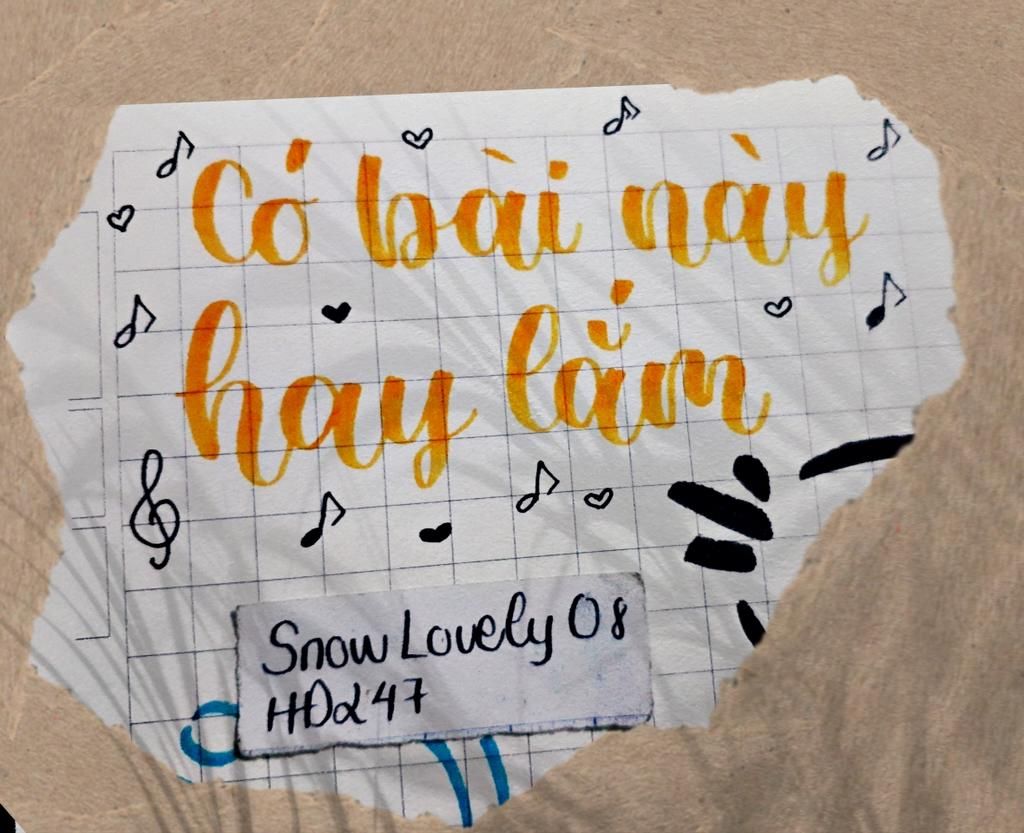 Có bài này
hay lắm
Snow Lovely 08
HD247